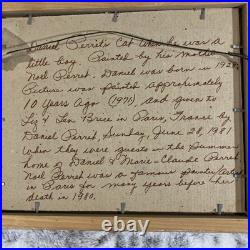 Daniel Perret's Cat when he was a
little boy. Painted by his mother
Noel Perret. Daniel was born in 1928.
Picture was painted approximately
10 Years Ago (1971), and given to
& Len Brice in Paris, France by
Daniel Perret, Sunday, June 28, 1981
when they were guests in the Summer
home of Daniel & Marie-Claude Perret
Noel Perret was a famous painter
in Paris for many years before her
death in 1980.